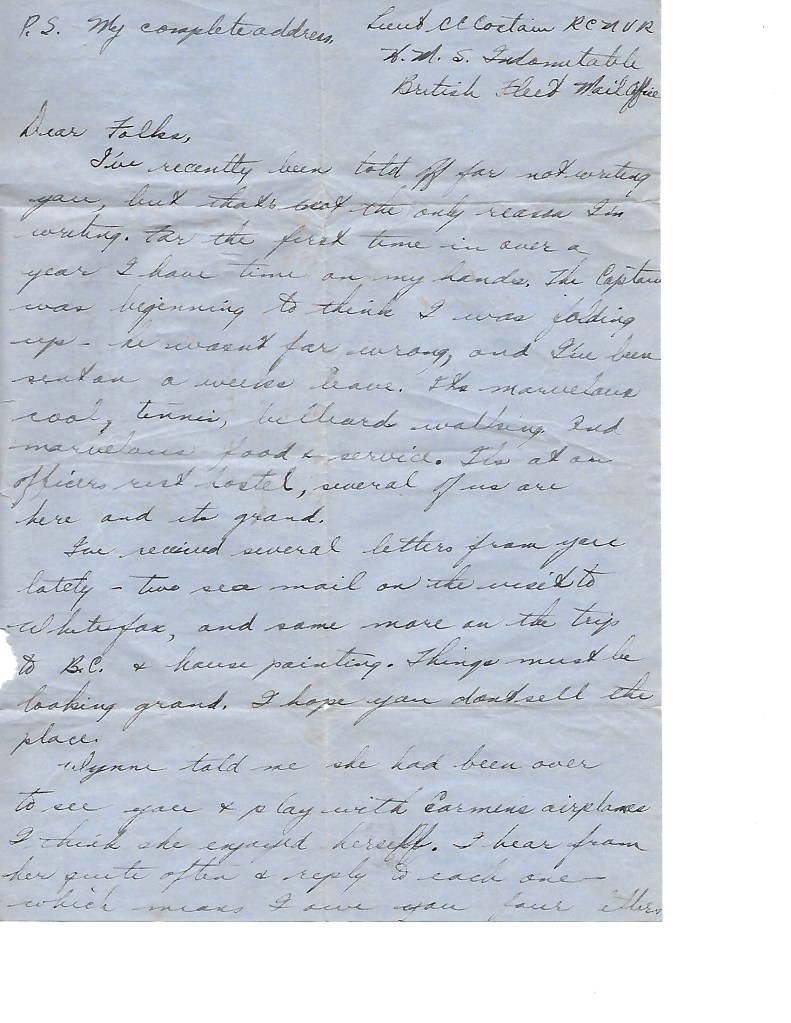 P.S. My complete address.
Lieut CC Costain RCNVR
H.M.S. Indomitable
British Fleet Mail Office
Dear Folks,
I've recently been told off for not writing
you, but thats not the only reason I'm
writing. For the first time in over a
year I have time on my hands. The Captain
was beginning to think I was folding
up - he wasnt far wrong, and I've been
sent on a weeks leave. Its marvelous
cool, tennis, billiard walking and
marvelous food & service. I'm at an
officers rest hostel, several of us are
here and its grand.
I've received several letters from you
lately - two sea mail on the visit to
Whitefox, and some more on the trip
to B.C. & house painting. Things must be
looking grand. I hope you dont sell the
place.
Wynne told me she had been over
to see you & play with Carmens airplanes
I think she enjoyed herself. I hear from
her quite often & reply to each one -
which means I owe you four letters